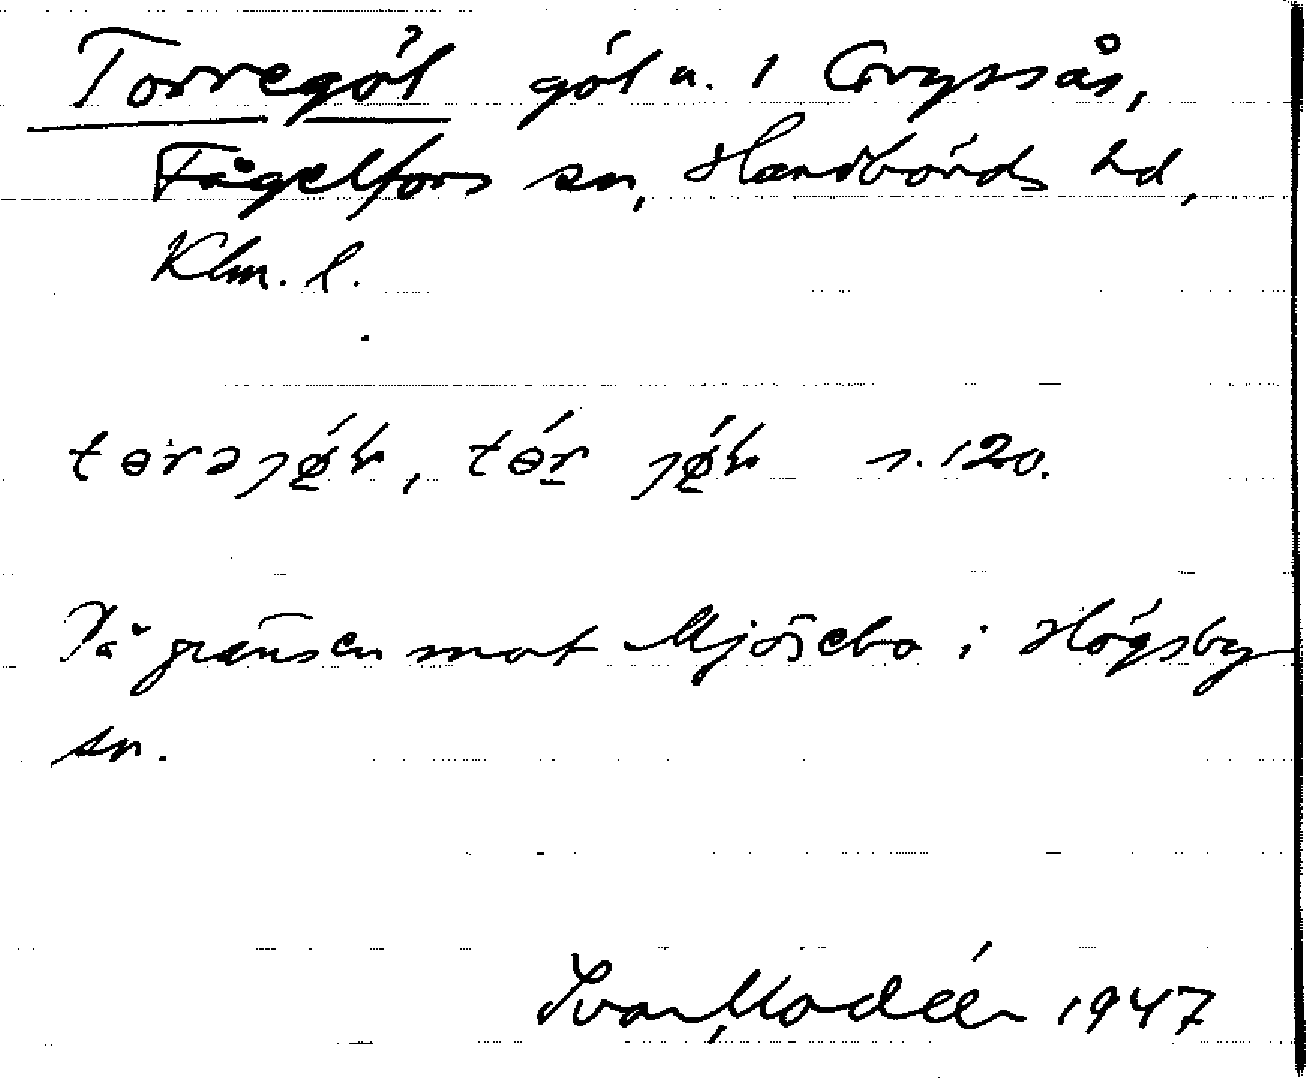 Torregöl göl u. 1 Gryssås,
Fågelfors sn, Handbörds hd,
Klm. l.
s. 120.
På gränsen mot Mjösebo i Högsby
sn.
Ivar Modéer 1947